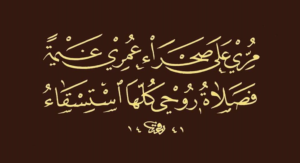 مُرِّي عَلَى صَحْرَاءِ عُمْرِي غَيْمَةً
فَصَلَاةُ رُوْحِي كُلُّهَا اسْتِسْقَاءُ
١٤٤١